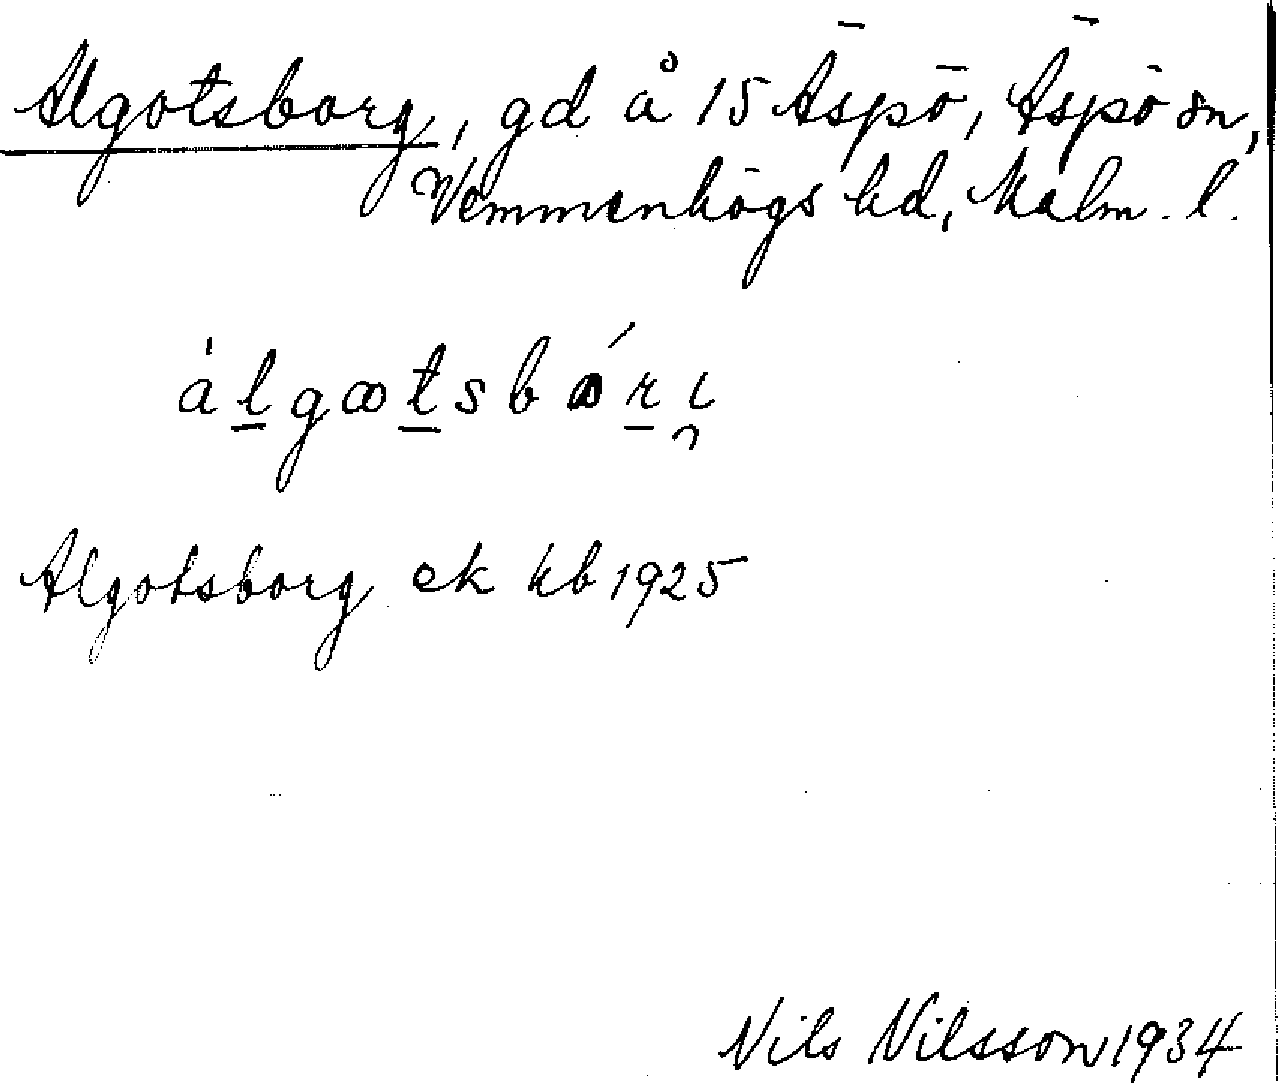 Algotsborg, gd å 15 Äspö, Äspö sn,
Vemmenhögs hd, Malm. l.
Algotsborg ek kb 1925
Nils Nilsson 1934